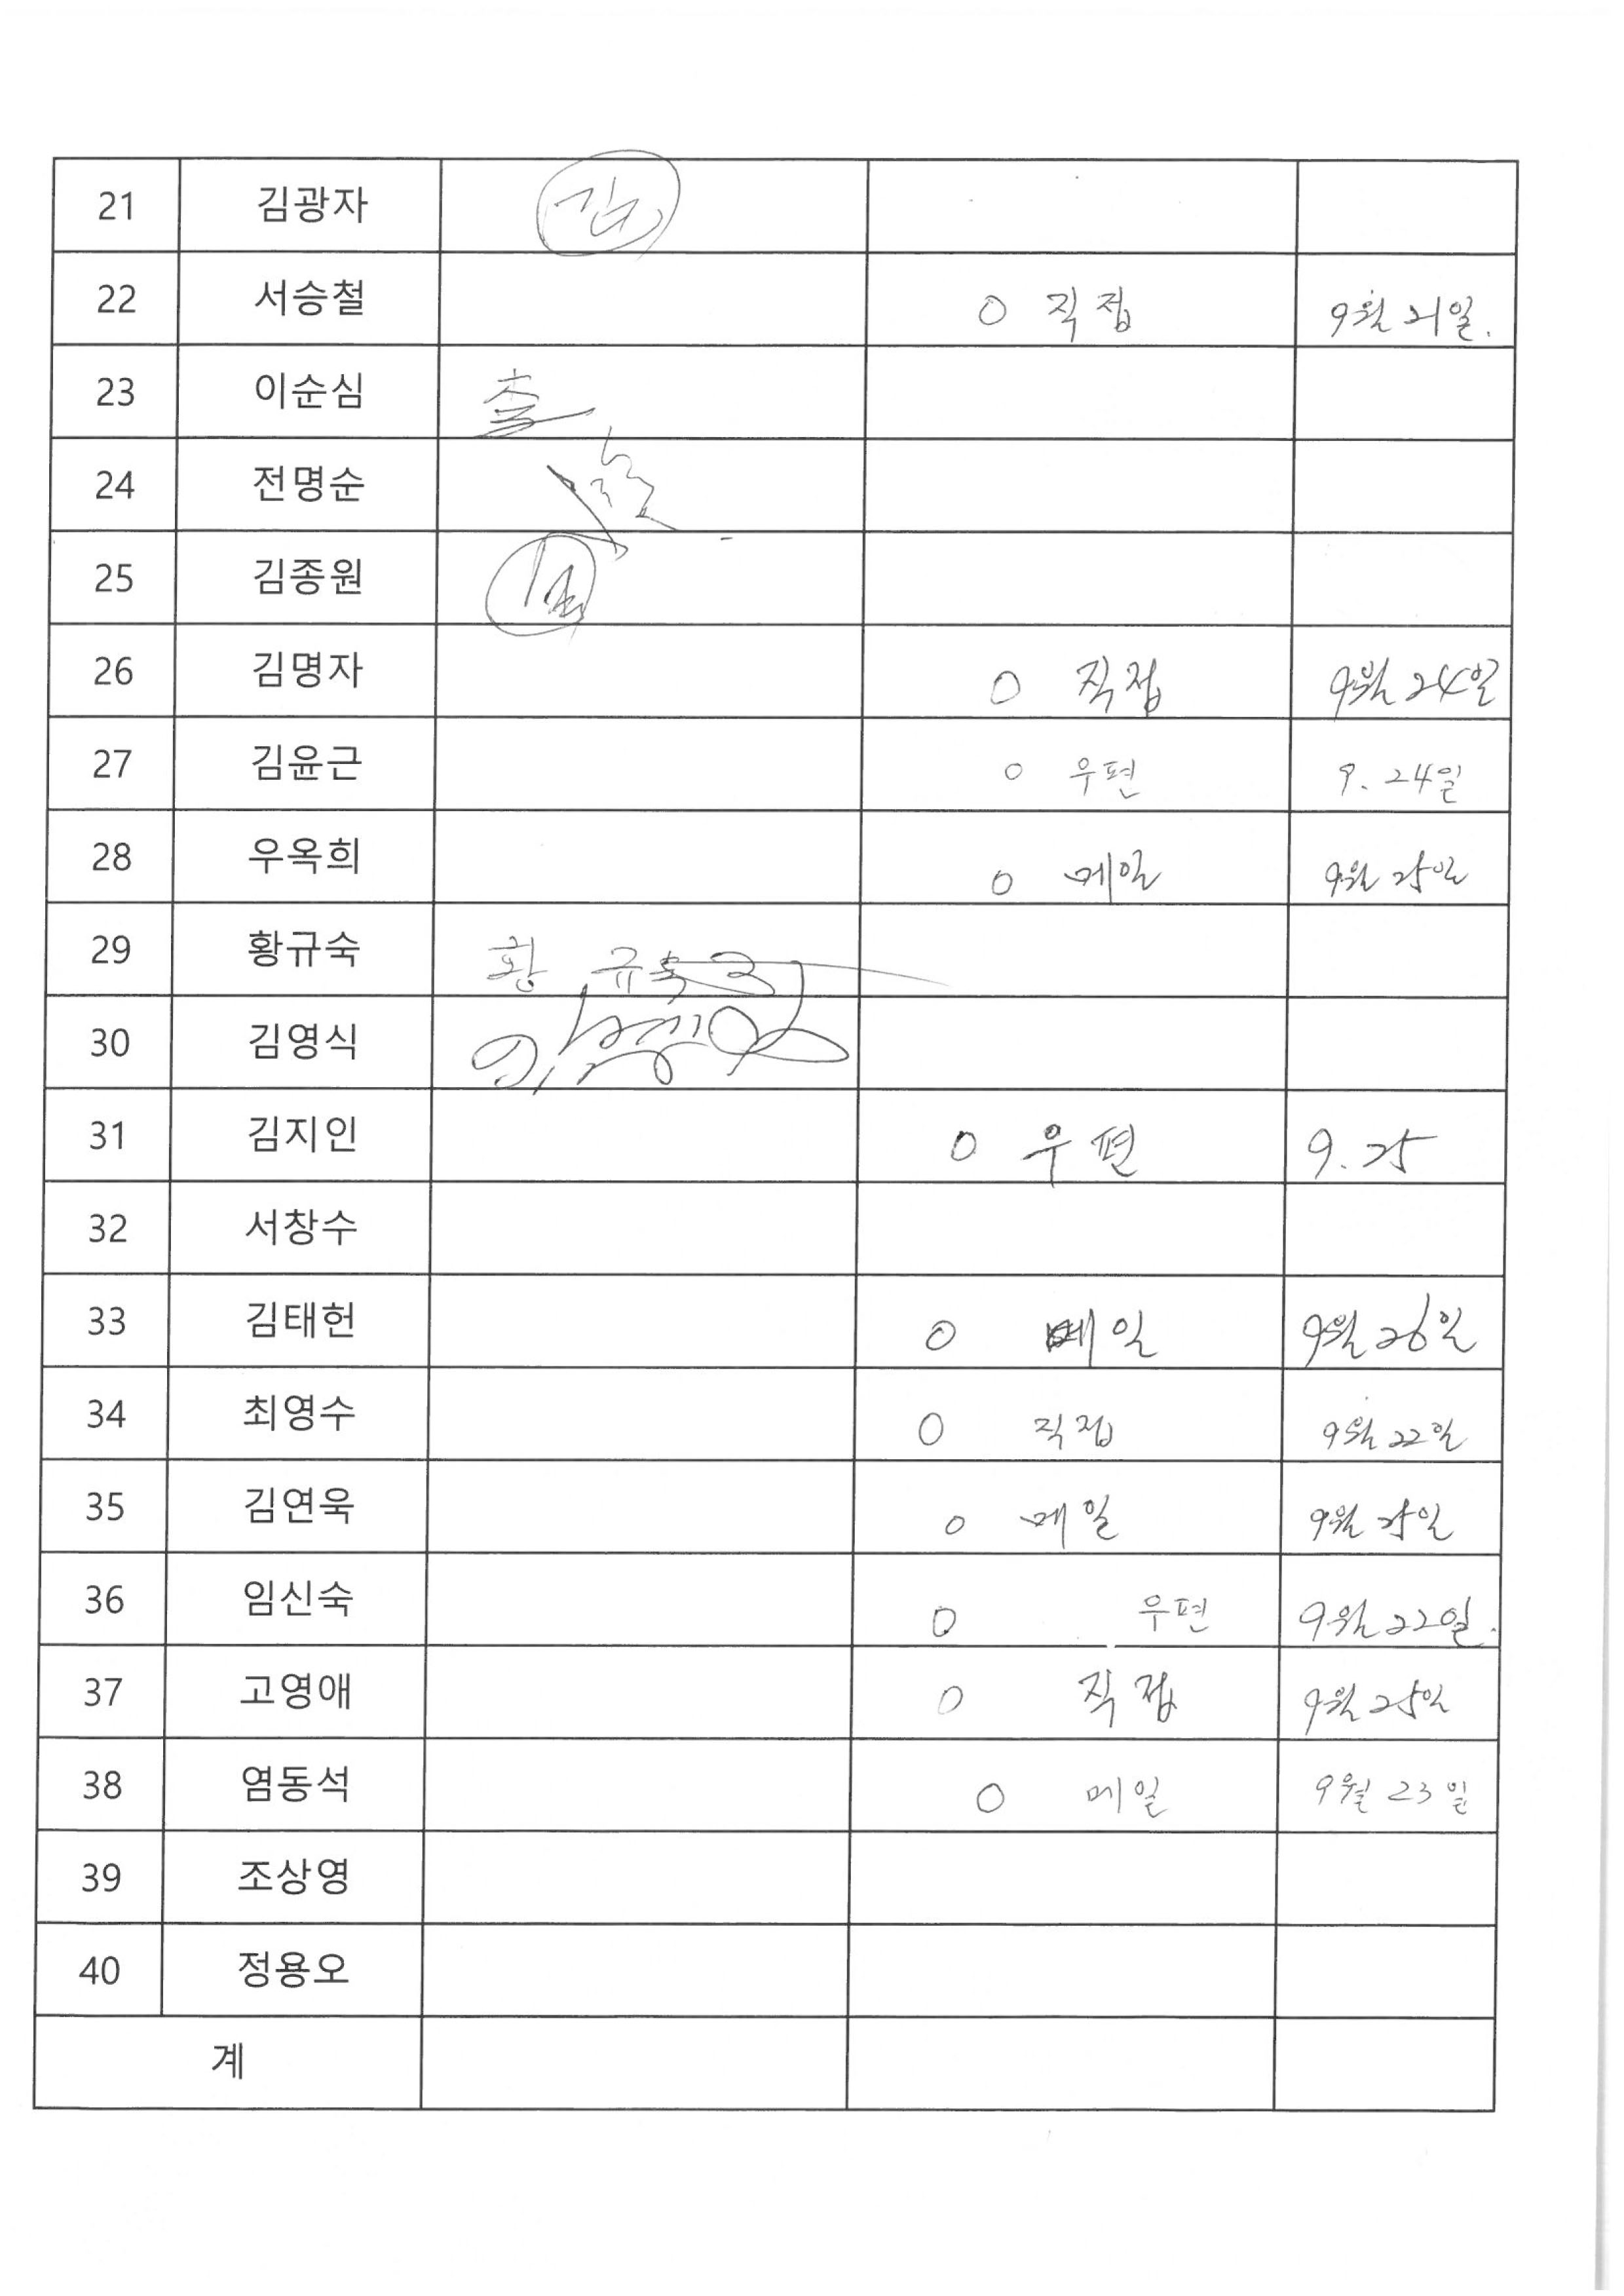 21 김광자
22 서승철 O 직접 9월 21일.
23 이순심 출
24 전명순
25 김종원
26 김명자 O 직접 9월 24일
27 김윤근 O 우편 9. 24일
28 우옥희 O 메일 9월 25일
29 황규숙 황 규숙
30 김영식
31 김지인 O 우편 9. 25
32 서창수
33 김태헌 O 메일 9월 26일
34 최영수 O 직접 9월 22일
35 김연욱 O 메일 9월 25일
36 임신숙 O 우편 9월 22일.
37 고영애 O 직접 9월 25일
38 염동석 O 메일 9월 23일
39 조상영
40 정용오
계